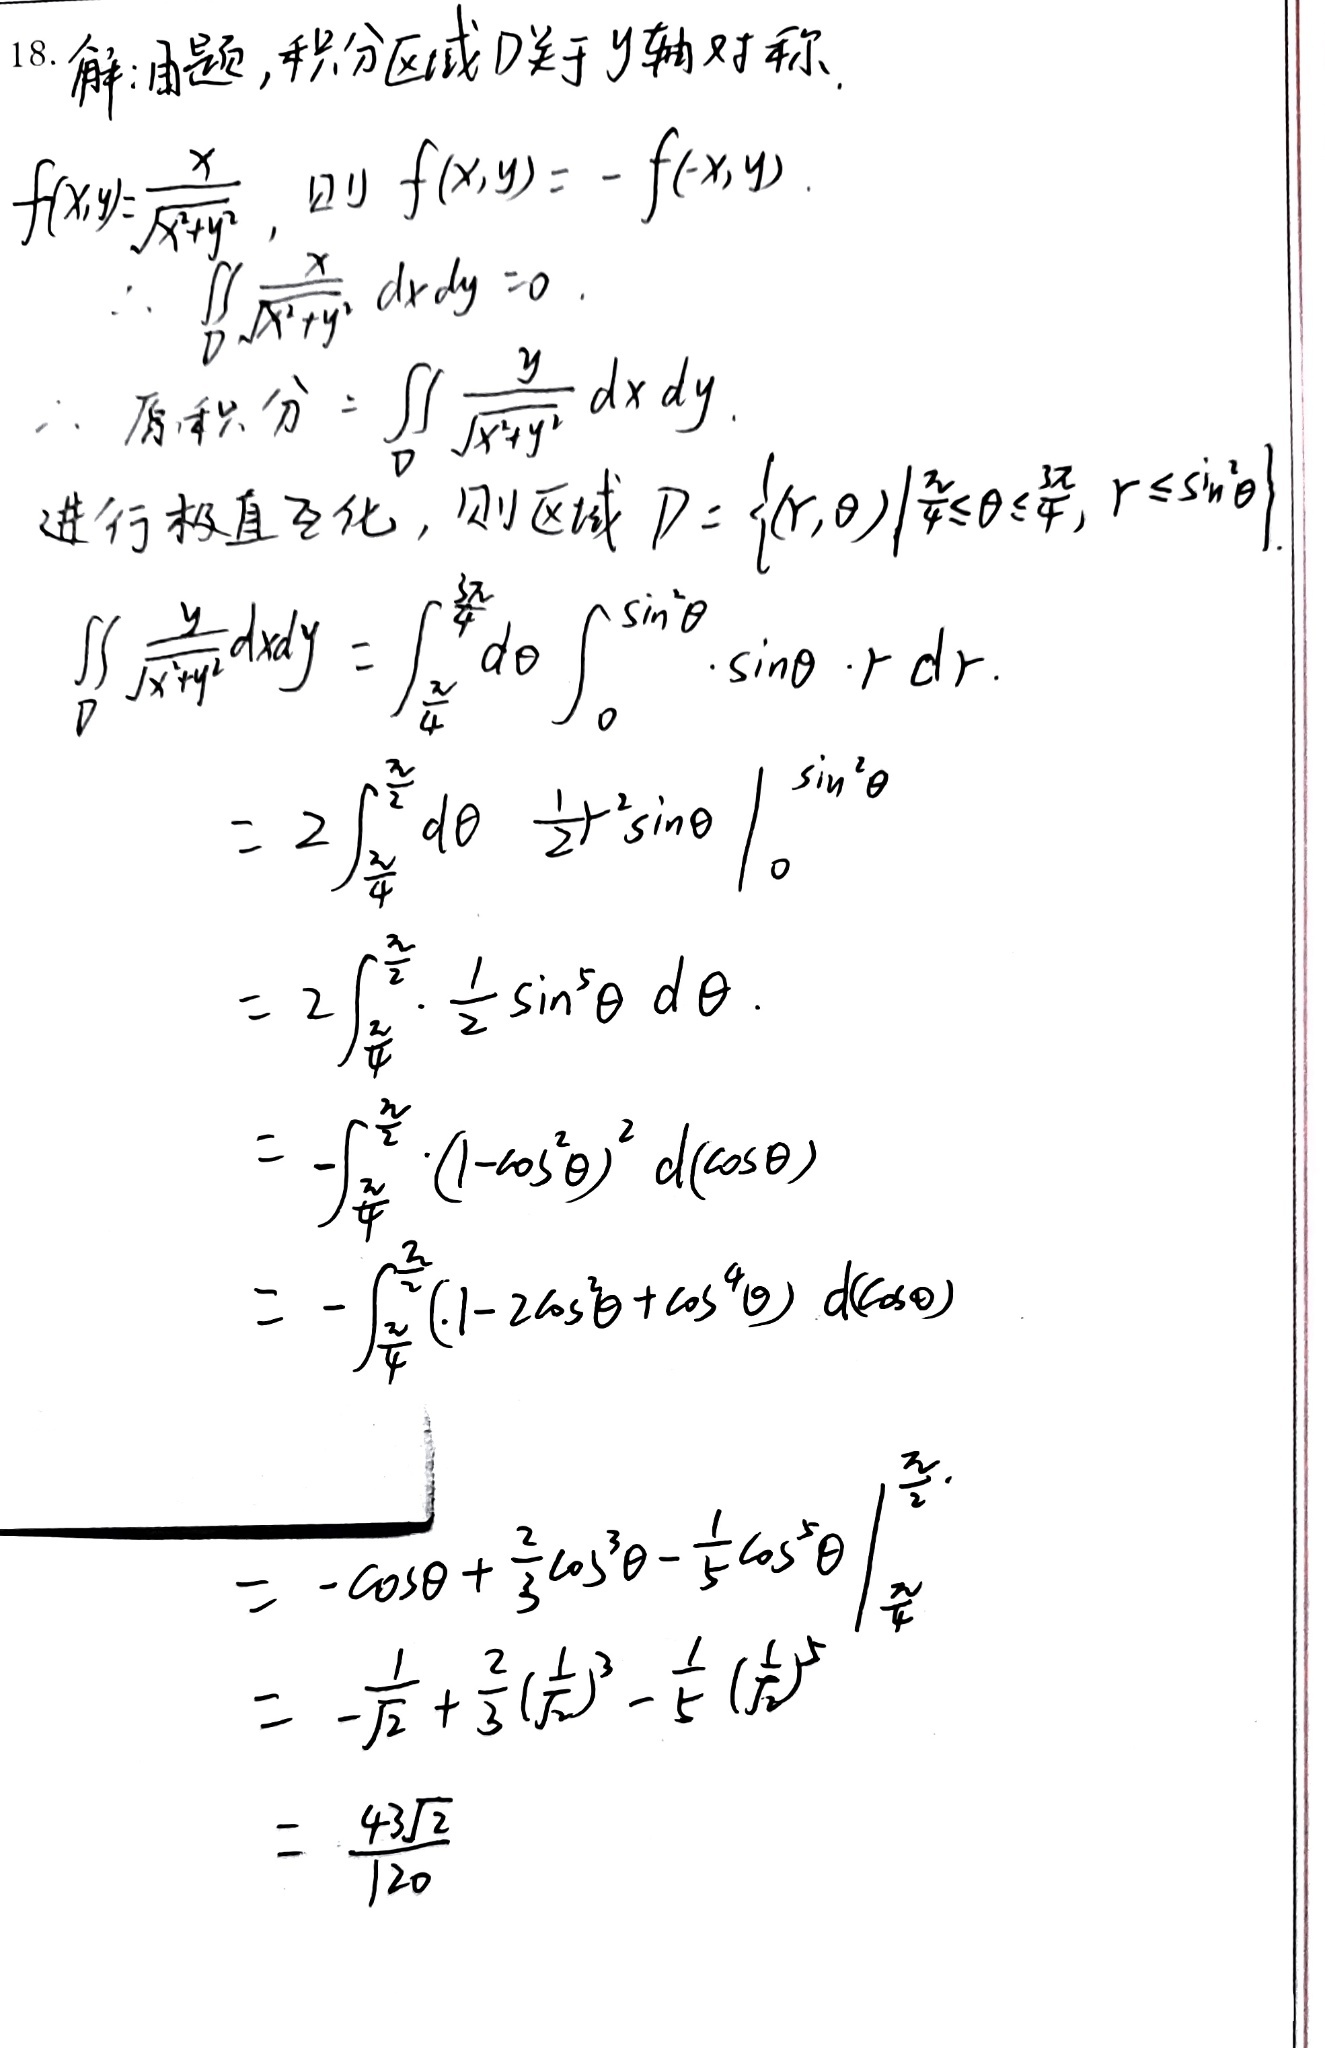 18. 解:由题,积分区域D关于y轴对称.
f(x,y)=x/√(x²+y²), 则 f(x,y)=-f(-x,y).
∴ ∬_D x/√(x²+y²) dxdy=0.
∴ 原积分=∬_D y/√(x²+y²) dxdy.
进行极直互化, 则区域 D={(r,θ)|π/4≤θ≤3π/4, r≤sin²θ}.
∬_D y/√(x²+y²) dxdy = ∫_{π/4}^{3π/4} dθ ∫_0^{sin²θ} ·sinθ·r dr.
= 2∫_{π/4}^{π/2} dθ 1/2 r² sinθ |_0^{sin²θ}
= 2∫_{π/4}^{π/2} · 1/2 sin⁵θ dθ.
= -∫_{π/4}^{π/2} ·(1-cos²θ)² d(cosθ)
= -∫_{π/4}^{π/2} (1-2cos²θ+cos⁴θ) d(cosθ)
= -cosθ + 2/3 cos³θ - 1/5 cos⁵θ |_{π/4}^{π/2}.
= -1/√2 + 2/3 (1/√2)³ - 1/5 (1/√2)⁵
= 43√2/120